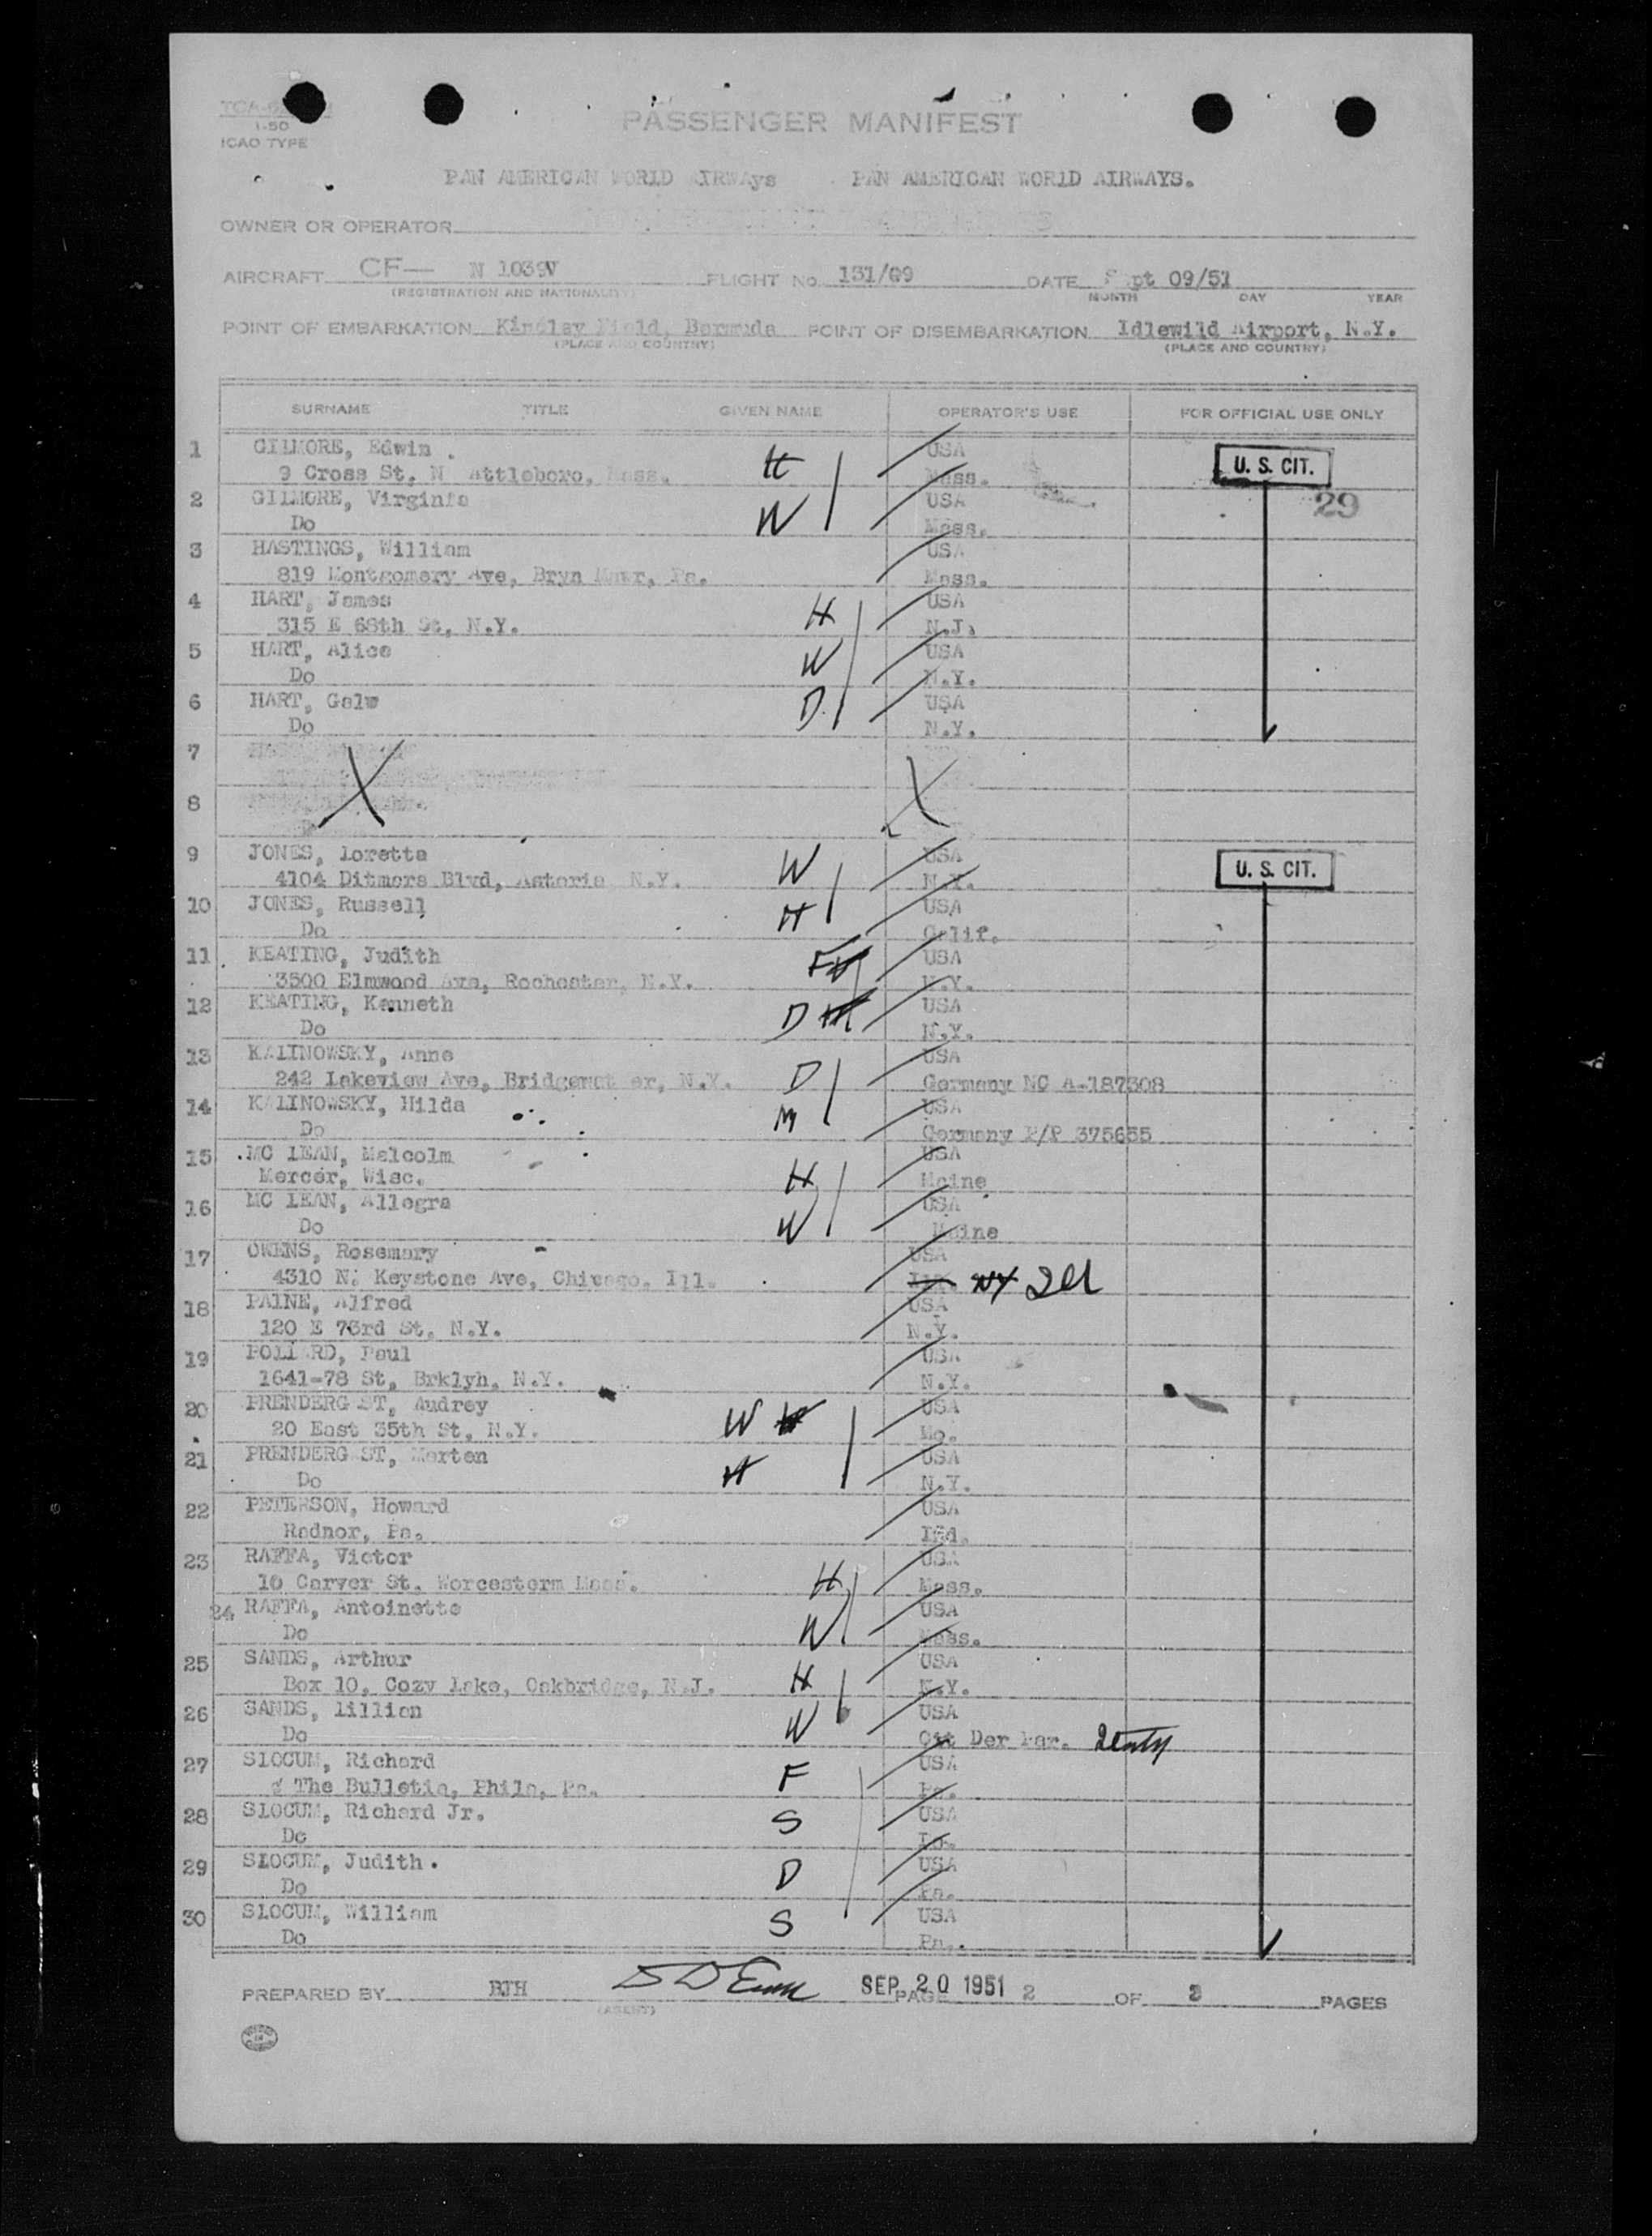 1-50
ICAO TYPE
PASSENGER MANIFEST
PAN AMERICAN WORLD AIRWAys PAN AMERICAN WORLD AIRWAYS.
OWNER OR OPERATOR
AIRCRAFT CF— N 1039V FLIGHT No. 131/09 DATE Sept 09/51
(REGISTRATION AND NATIONALITY) MONTH DAY YEAR
POINT OF EMBARKATION Kindley Field, Bermuda POINT OF DISEMBARKATION Idlewild Airport, N.Y.
(PLACE AND COUNTRY) (PLACE AND COUNTRY)
SURNAME TITLE GIVEN NAME OPERATOR'S USE FOR OFFICIAL USE ONLY
1 GILMORE, Edwin . H USA U. S. CIT.
9 Cross St, N Attleboro, Mass. Mass.
2 GILMORE, Virginia W USA 29
Do Mass.
3 HASTINGS, William USA
819 Montgomery Ave, Bryn Mawr, Pa. Mass.
4 HART, James H USA
315 E 68th St, N.Y. N.J.
5 HART, Alice W USA
Do N.Y.
6 HART, Galw D USA
Do N.Y.
7
8
9 JONES, Loretta W USA U. S. CIT.
4104 Ditmars Blvd, Astoria N.Y. N.Y.
10 JONES, Russell H USA
Do Calif.
11 KEATING, Judith F USA
3500 Elmwood Ave, Rochester, N.Y. N.Y.
12 KEATING, Kenneth D USA
Do N.Y.
13 KALINOWSKY, Anna D USA
242 Lakeview Ave, Bridgewat er, N.Y. Germany NC A-187308
14 KALINOWSKY, Hilda M USA
Do Germany P/P 375655
15 MC LEAN, Malcolm H USA
Mercer, Wisc. Maine
16 MC LEAN, Allegra W USA
Do Maine
17 OWENS, Rosemary USA
4310 N. Keystone Ave, Chicago. Ill. NY Ill
18 PAINE, Alfred USA
120 E 73rd St, N.Y. N.Y.
19 POLLARD, Paul USA
1641-78 St, Brklyh, N.Y. N.Y.
20 PRENDERGAST, Audrey W USA
20 East 35th St, N.Y. Mo.
21 PRENDERGAST, Morten H USA
Do N.Y.
22 PETERSON, Howard USA
Radnor, Pa. Ind.
23 RAFFA, Victor H USA
10 Carver St, Worcesterm Mass. Mass.
24 RAFFA, Antoinette W USA
Do Mass.
25 SANDS, Arthur H USA
Box 10, Cozy Lake, Oakbridge, N.J. N.Y.
26 SANDS, Lillian W USA
Do Cit Der Par. Italy
27 SLOCUM, Richard F USA
The Bulletin, Phila, Pa. Pa.
28 SLOCUM, Richard Jr. S USA
Do Pa.
29 SLOCUM, Judith. D USA
Do Pa.
30 SLOCUM, William S USA
Do Pa.
PREPARED BY BJH SEP 20 1951 PAGE 2 OF 3 PAGES
(AGENT)